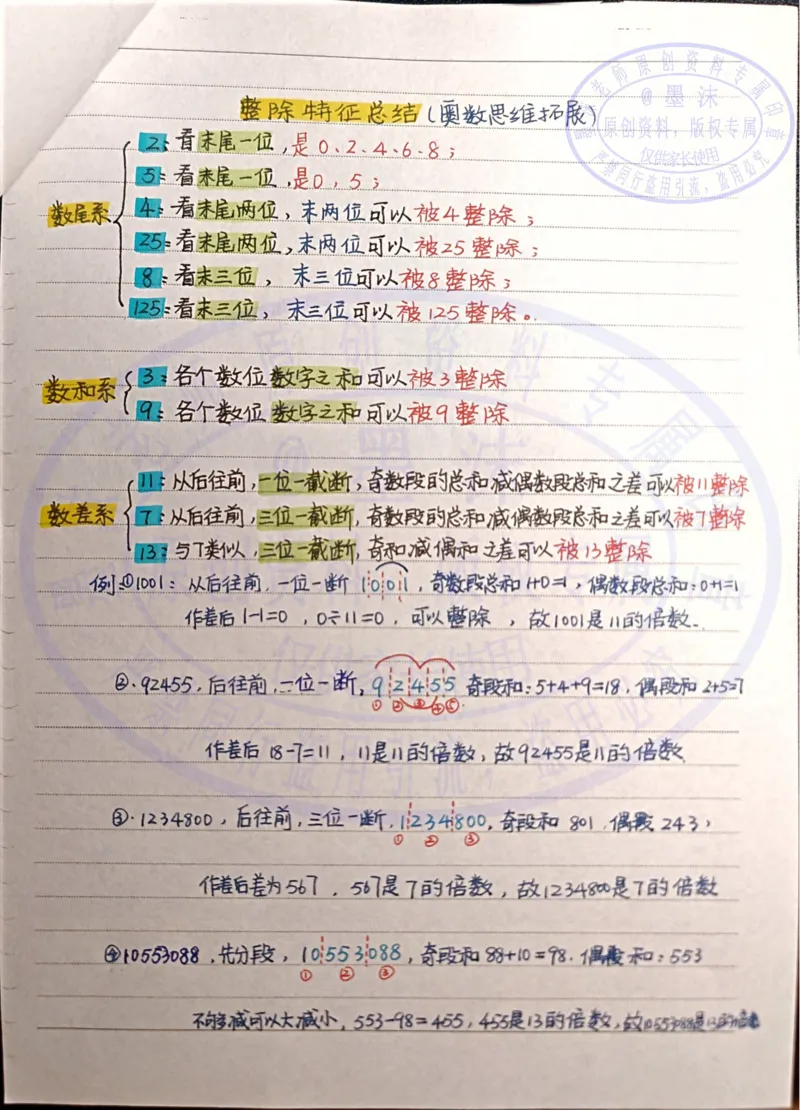 整除特征总结(奥数思维拓展)
数尾系
2:看末尾一位,是0、2、4、6、8;
5:看末尾一位,是0,5;
4:看末尾两位,末两位可以被4整除;
25:看末尾两位,末两位可以被25整除;
8:看末三位,末三位可以被8整除;
125:看末三位,末三位可以被125整除。
数和系
3:各个数位数字之和可以被3整除
9:各个数位数字之和可以被9整除
数差系
11:从后往前,一位一截断,奇数段的总和减偶数段总和之差可以被11整除
7:从后往前,三位一截断,奇数段的总和减偶数段总和之差可以被7整除
13:与7类似,三位一截断,奇和减偶和之差可以被13整除
例:①1001:从后往前,一位一断 1001,奇数段总和1+0=1,偶数段总和:0+1=1
作差后1-1=0,0÷11=0,可以整除,故1001是11的倍数.
②.92455,后往前,一位一断,92455 奇段和:5+4+9=18,偶段和2+5=7
①②③④⑤
作差后18-7=11,11是11的倍数,故92455是11的倍数.
③.1234800,后往前,三位一断.1234800,奇段和801.偶段243,
①②③
作差后差为567.567是7的倍数,故1234800是7的倍数
④10553088,先分段,10553088,奇段和88+10=98.偶段和:553
①②③
不够减可以大减小,553-98=455,455是13的倍数,故10553088是13的倍数
老师原创资料专属印章
@墨沫
原创资料,版权专属
仅供家长使用
严禁同行盗用引流,盗用必究